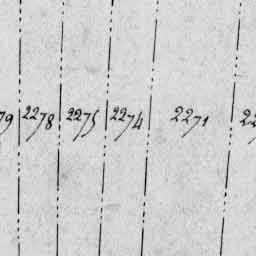 79 2278 2275 2274 2271 22